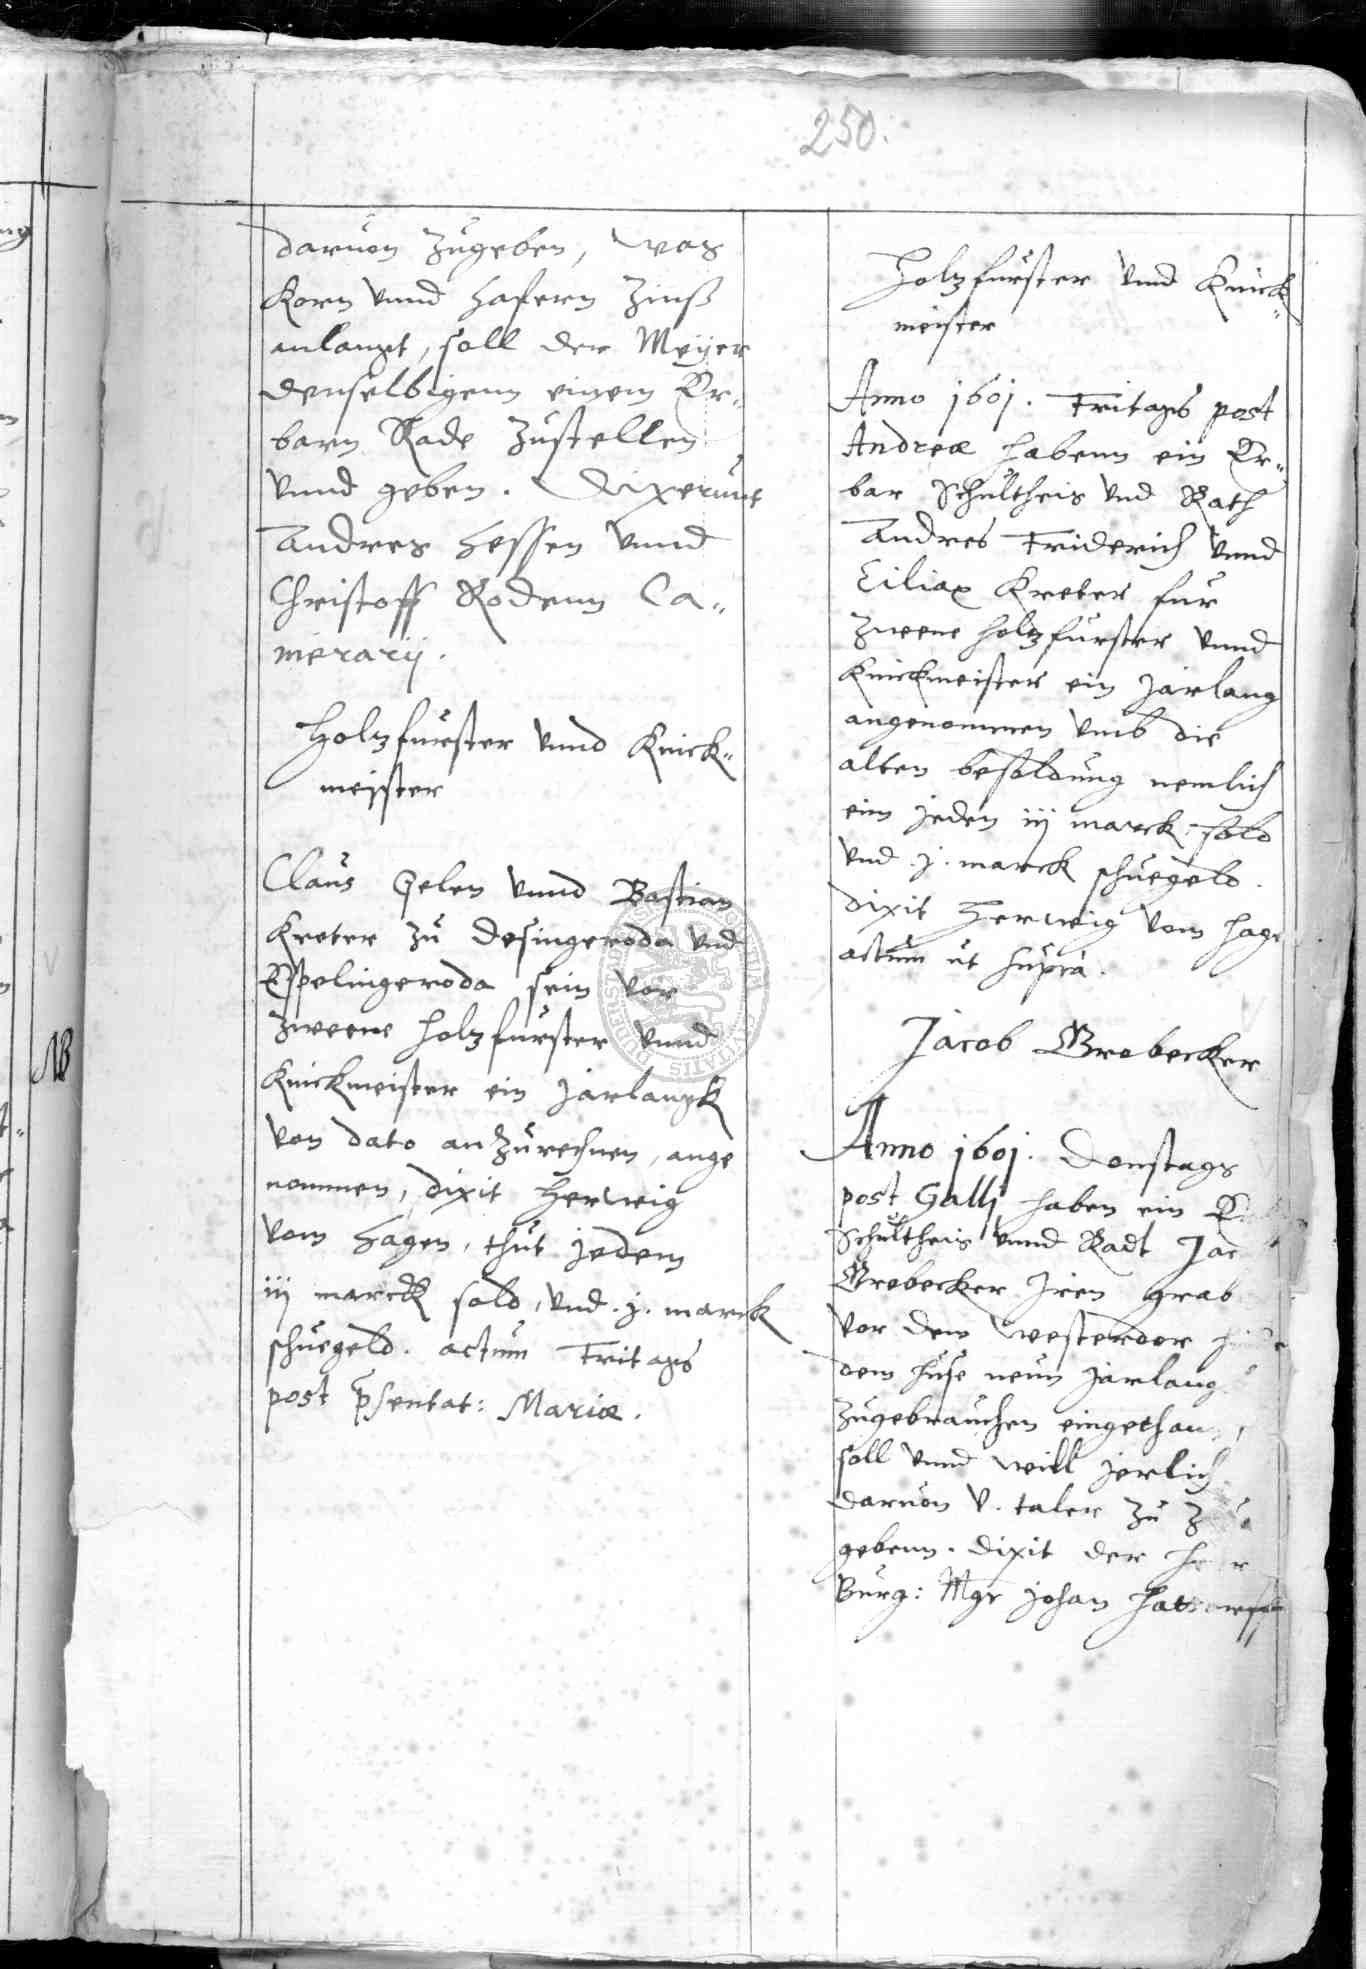 250.
daruon zugeben, was
Korn unnd hafern Zinß
anlangt, soll der Meyer
denselbigenn einem Er„
barn Rade zustellen
unnd geben. Dixerunt
Andres Hessen unnd
Christoff Rodenn Ca„
merarij.
Holzfurster unnd Knick„
meister
Claus Gelen unnd Bastian
Kreter zu Desingeroda und
Espelingeroda sein vor
zweene holzfurster unnd
Knickmeister ein jarlangk
von dato anzurechnen, ange
nommen, dixit Herwig
vom Hagen, thut jedem
iij marck sold, und .j. marck
schuegeld. actum Fritags
post psentat: Mariæ.
Holzfurster unnd Knick„
meister
Anno 1601. Fritags post
Andreæ habenn ein Er„
bar Schultheis und Rath
Andres Friderich unnd
Ciliax Kreter fur
zweene holzfurster unnd
Knickmeister ein jarlang
angenommen umb die
alten besoldung nemlich
eim jeden iij marck sold
und .j. marck schuegeld.
dixit Herwig vom hage
actum ut supra.
Jacob Grobecker
Anno 1601. Donstags
post Galli haben ein
Schultheis unnd Radt Jac
Grobecker iren grab
vor dem westerdor
dem huse neun jarlang
zugebrauchen eingethan,
soll unnd will jerlich
daruon v. taler zu
gebenn. dixit der
Burg: Mgr Johan
NB